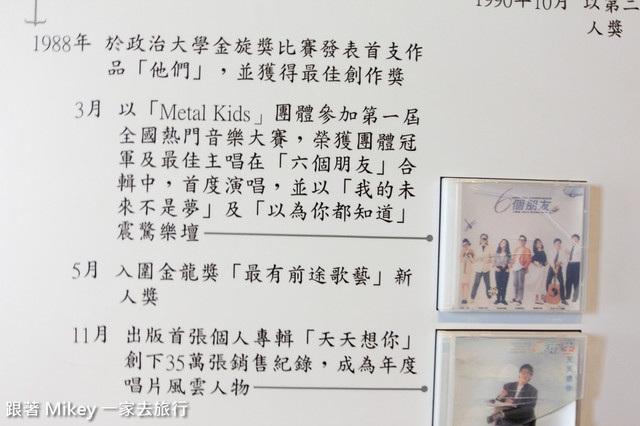 1990年10月 以第三
人獎
1988年 於政治大學金旋獎比賽發表首支作
品「他們」，並獲得最佳創作獎
3月 以「Metal Kids」團體參加第一屆
全國熱門音樂大賽，榮獲團體冠
軍及最佳主唱在「六個朋友」合
輯中，首度演唱，並以「我的未
來不是夢」及「以為你都知道」
震驚樂壇
6個朋友
5月 入圍金龍獎「最有前途歌藝」新
人獎
11月 出版首張個人專輯「天天想你」
創下35萬張銷售紀錄，成為年度
唱片風雲人物
天天想你
跟著 Mikey 一家去旅行